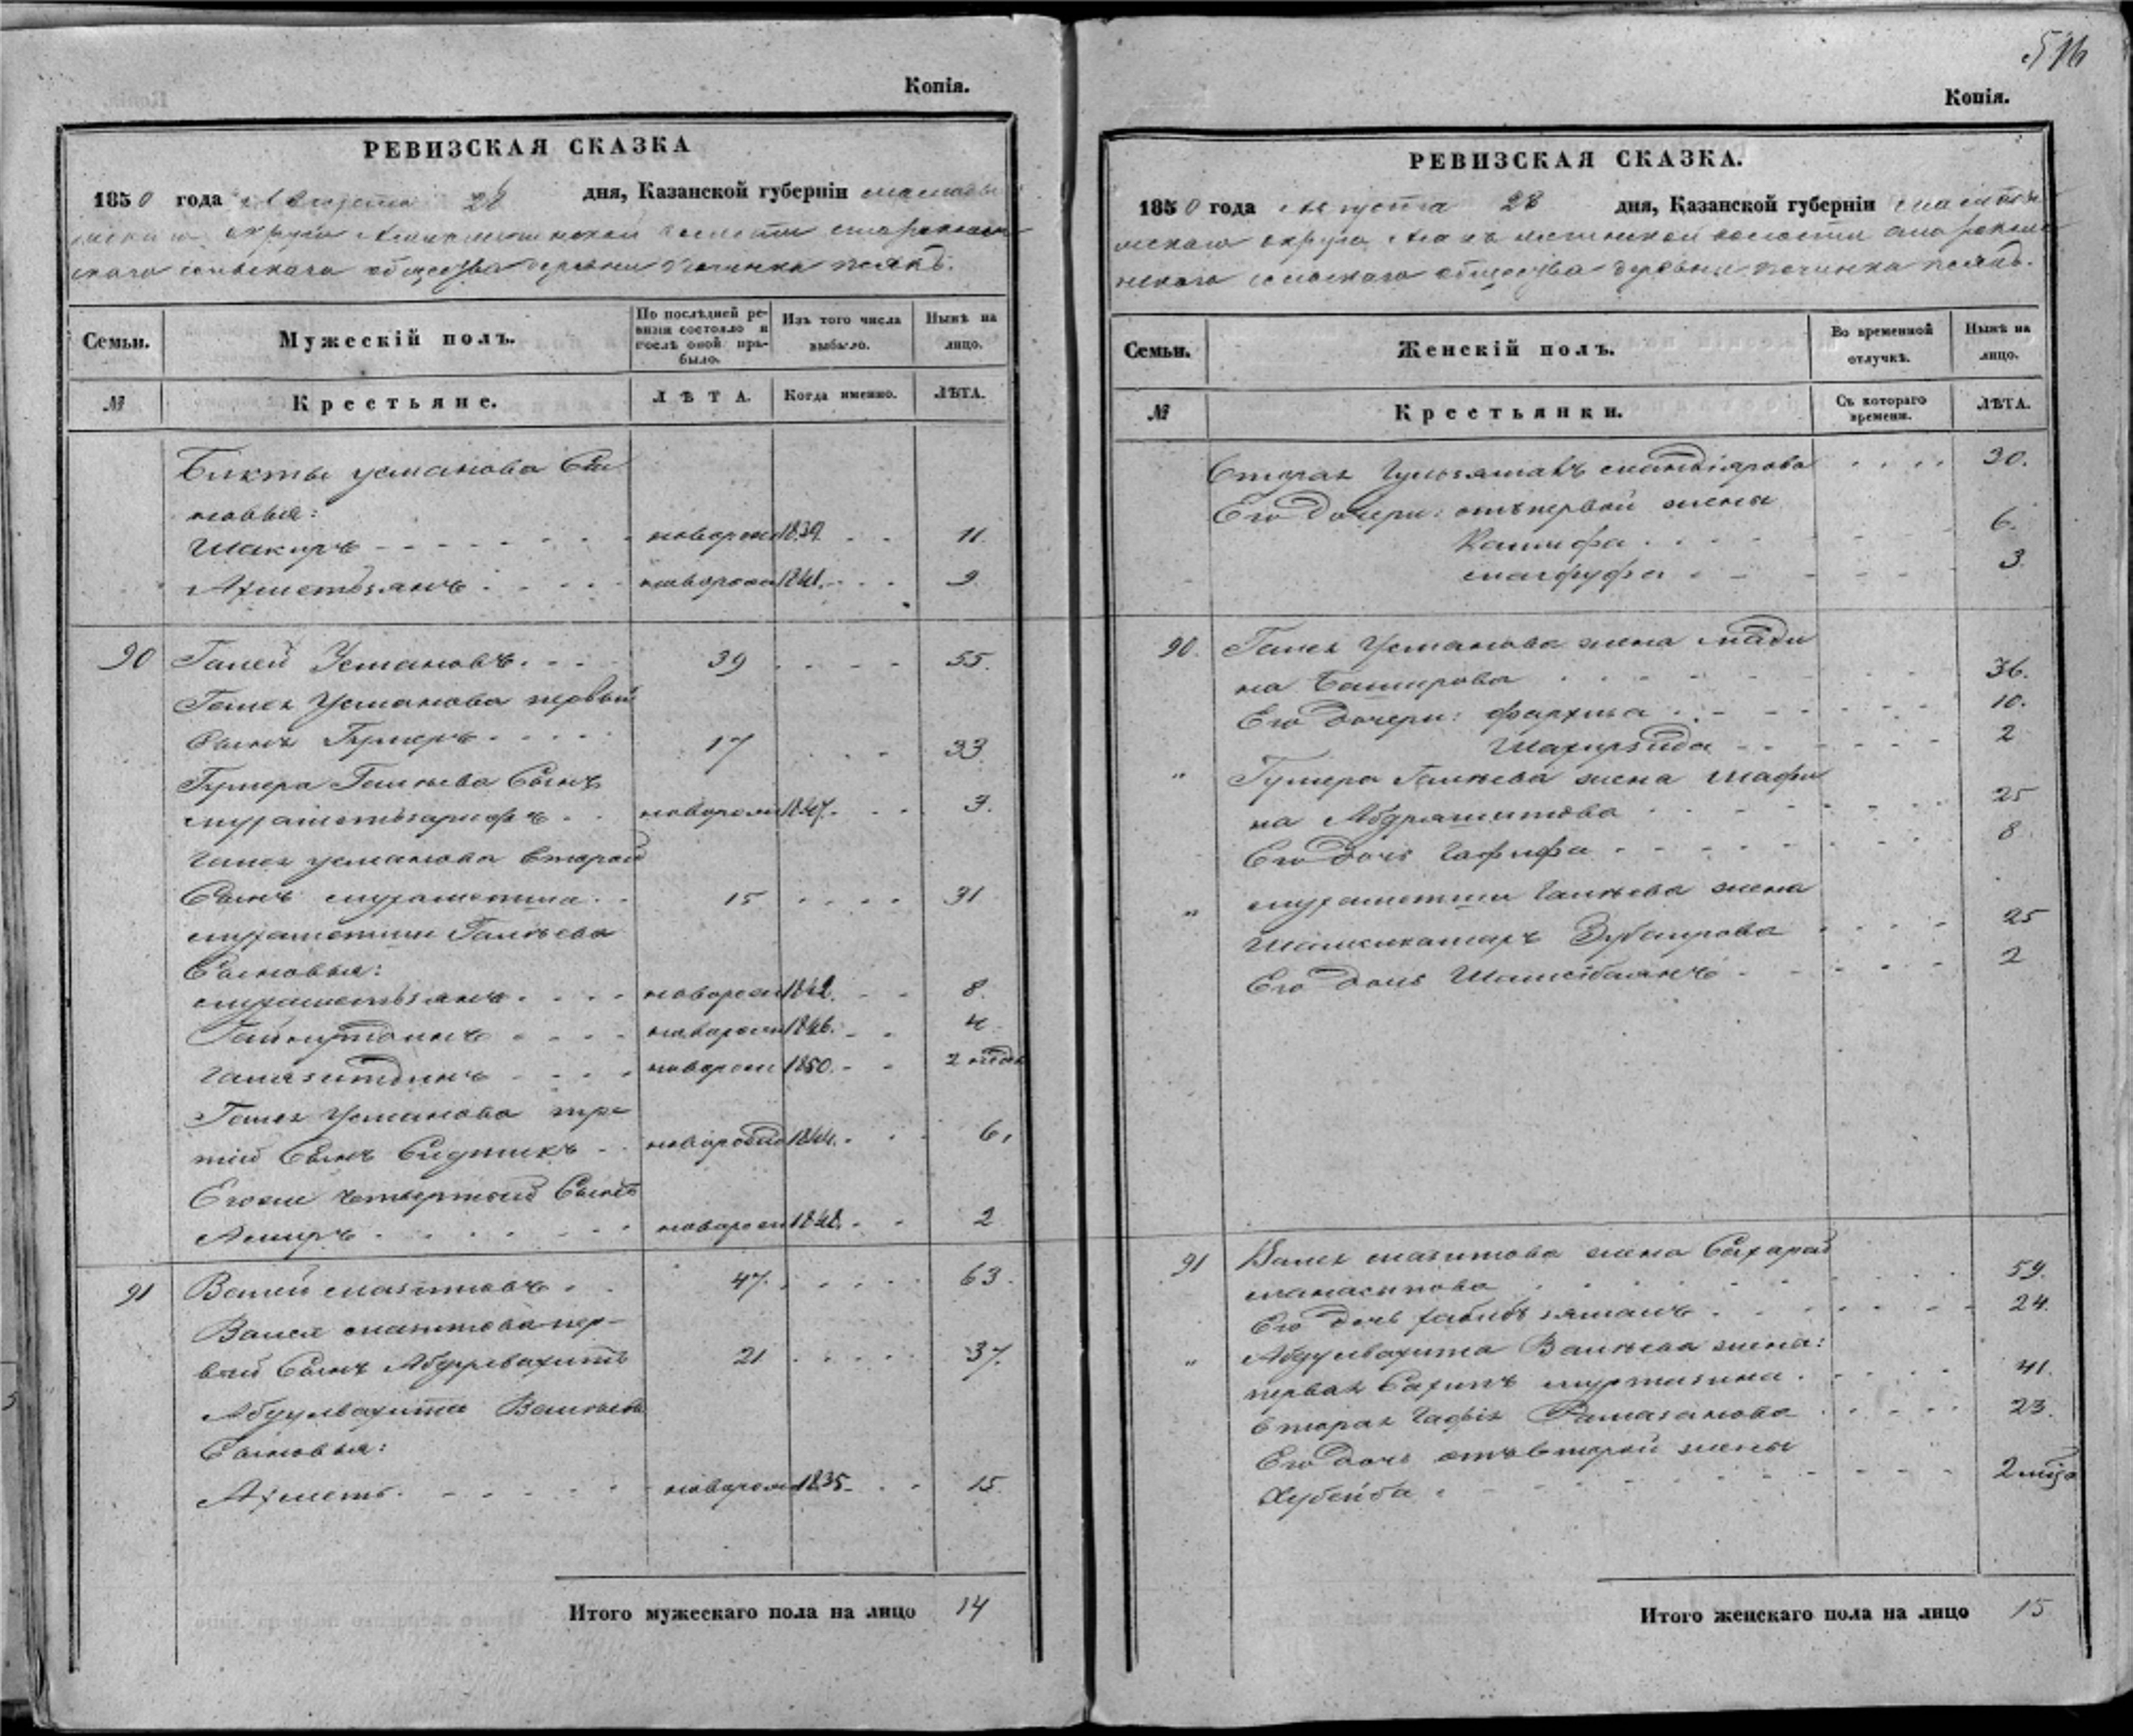 516
Копія.
РЕВИЗСКАЯ СКАЗКА
1850 года Августа 28 дня, Казанской губерніи мамадыш
скаго округа волости
скаго сельскаго общества деревни Починка
Семьи.
Мужескій полъ.
По послѣдней ре-
визіи состояло и
послѣ оной при-
было.
Изъ того числа
выбыло.
Нынѣ на
лицо.
№
Крестьяне.
ЛѢТА.
Когда именно.
ЛѢТА.
Бикты усманова Сы
новья:
Шакиръ новорож 1839 11.
Ахметьзянъ новорож 1841. 9
90 Галей Усмановъ. 39 55.
Галея Усманова первый
Сынъ Гумеръ 17 33
Гумера Галѣева Сынъ
мухаметьзарифъ новорож 1847. 3.
Галея усманова Второй
Сынъ мухаметша 15 31
мухаметши Галѣева
Сыновья:
мухаметьзянъ новорож 1842. 8.
Гайнутдинъ новорож 1846. 4
новорож 1850. 2 недѣл
Галея Усманова тре
тій Сынъ Сидтикъ новорожд 1844. 6.
Егоже четвертый Сынъ
Амиръ новорож 1848. 2
91 Валей мазитовъ 47. 63.
Валея мазитова пер-
вый Сынъ Абдулвахитъ 21 37.
Абдулвахита Валѣева
Сыновья:
Ахметъ. новорож 1835 15
Итого мужескаго пола на лицо 14
Копія.
РЕВИЗСКАЯ СКАЗКА.
1850 года Августа 28 дня, Казанской губерніи мамады
шскаго округа волости
скаго сельскаго общества деревни Починка
Семьи.
Женскій полъ.
Во временной
отлучкѣ.
Нынѣ на
лицо.
№
Крестьянки.
Съ котораго
времени.
ЛѢТА.
Вторая 30.
Его Дочери: отъ первой жены
Кашифа 6.
магфуфа 3
90. Галея Усманова жена мади
на Баширова 36.
Его дочери: фархиза 10.
2
" Гумера Галѣева жена Шафи
на Абдряшитова 25
Его дочь Гафифа 8
" мухаметши Галѣева жена
Шамсикамаръ Зубаирова 25
Его дочь Шамсибаянъ 2
91 Валея мазитова жена
59.
Его дочь 24.
" Абдулвахита Валѣева жена:
первая Сахипъ муртазина 41.
вторая Рамазанова 23.
Его дочь отъ второй жены
Хубейба 2 мѣся
Итого женскаго пола на лицо 15